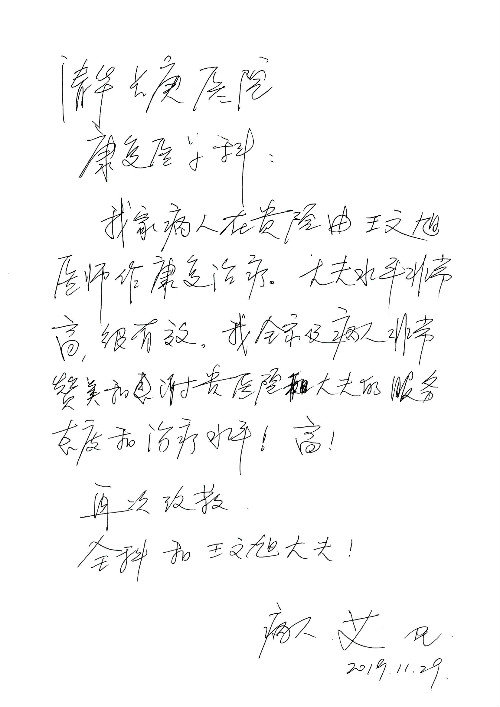 清华长庚医院
康复医学科：
我家病人在贵院由王文旭
医师作康复治疗。大夫水平非常
高，很有效，我全家及病人非常
赞美和感谢贵医院和大夫的服务
态度和治疗水平！高！
再次致敬
全科和王文旭大夫！
病人 艾
2019.11.29.